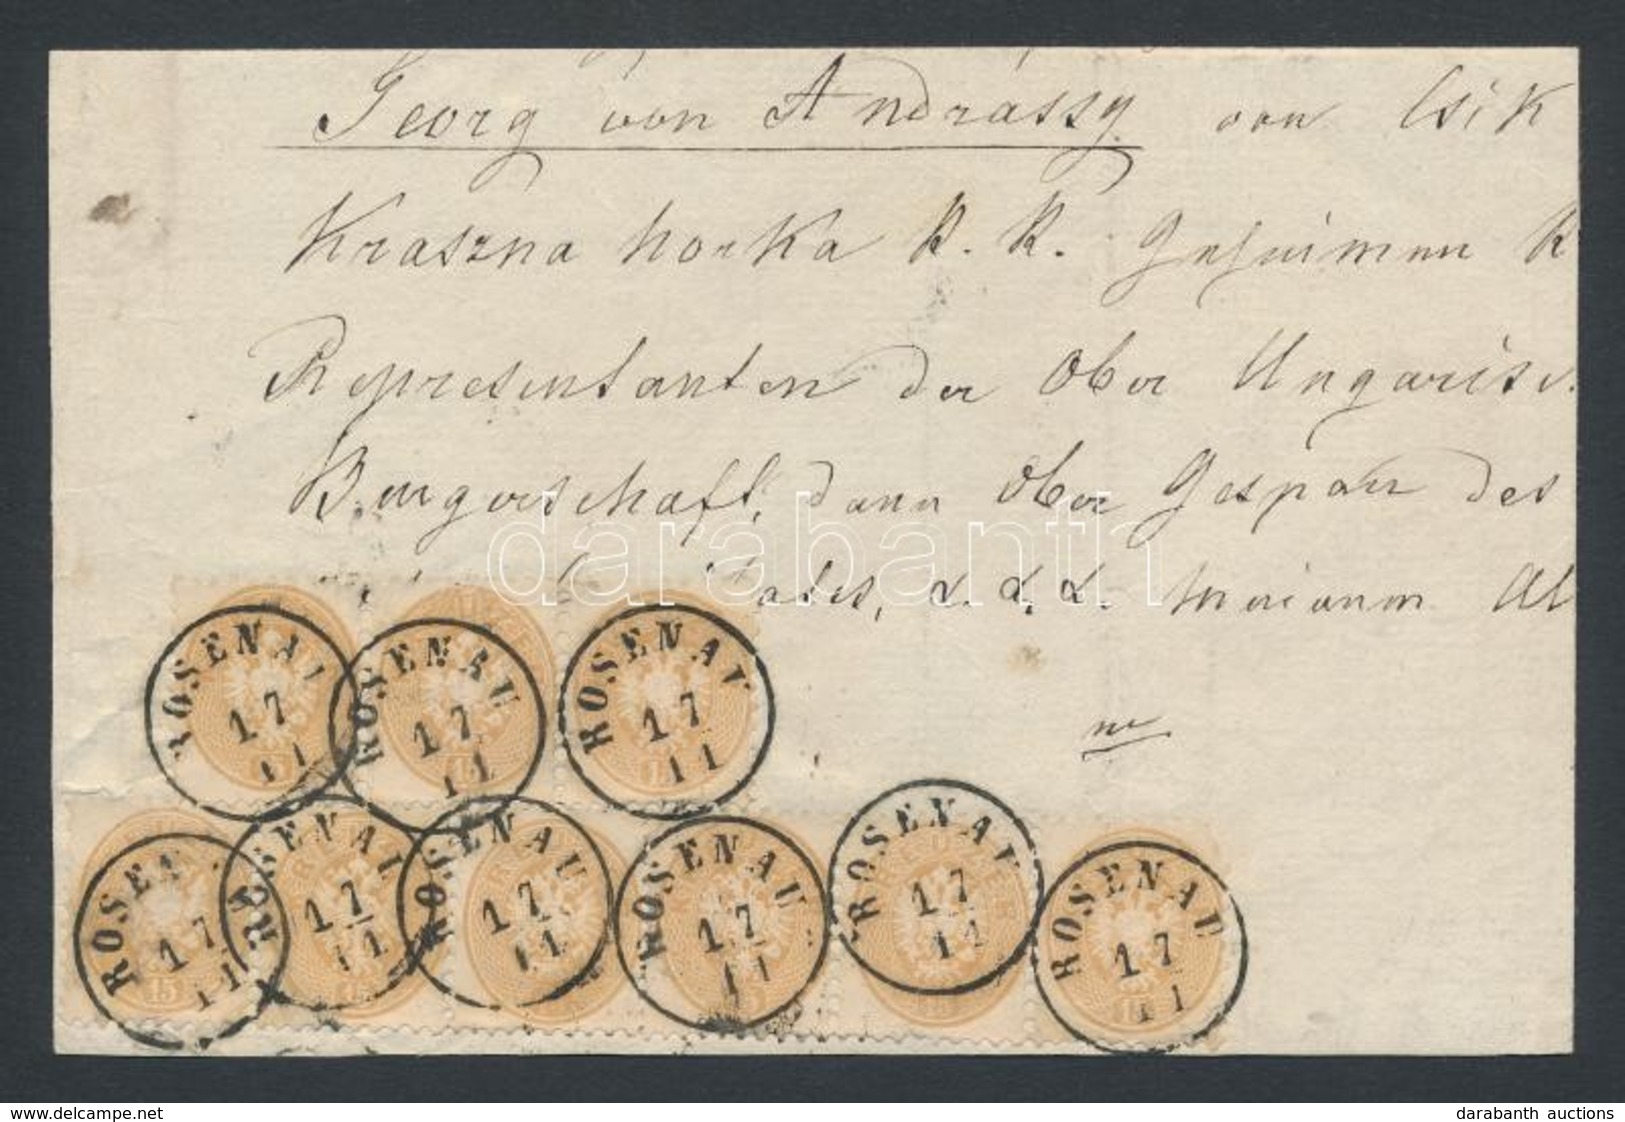 Georg von Andrássy von Csik
Kraszna horka K. K. Geheimen R
Representanten der Ober Ungarisc
Burgerschaft, dann Ober Gespan des
ates, &. &. &.
darabanth
ROSENAU
17
11
ROSENAU
17
11
ROSENAU
17
11
15
ROSENAU
17
11
ROSENAU
17
11
ROSENAU
17
11
ROSENAU
17
11
ROSENAU
17
11
ROSENAU
17
11
www.delcampe.net
darabanth auctions